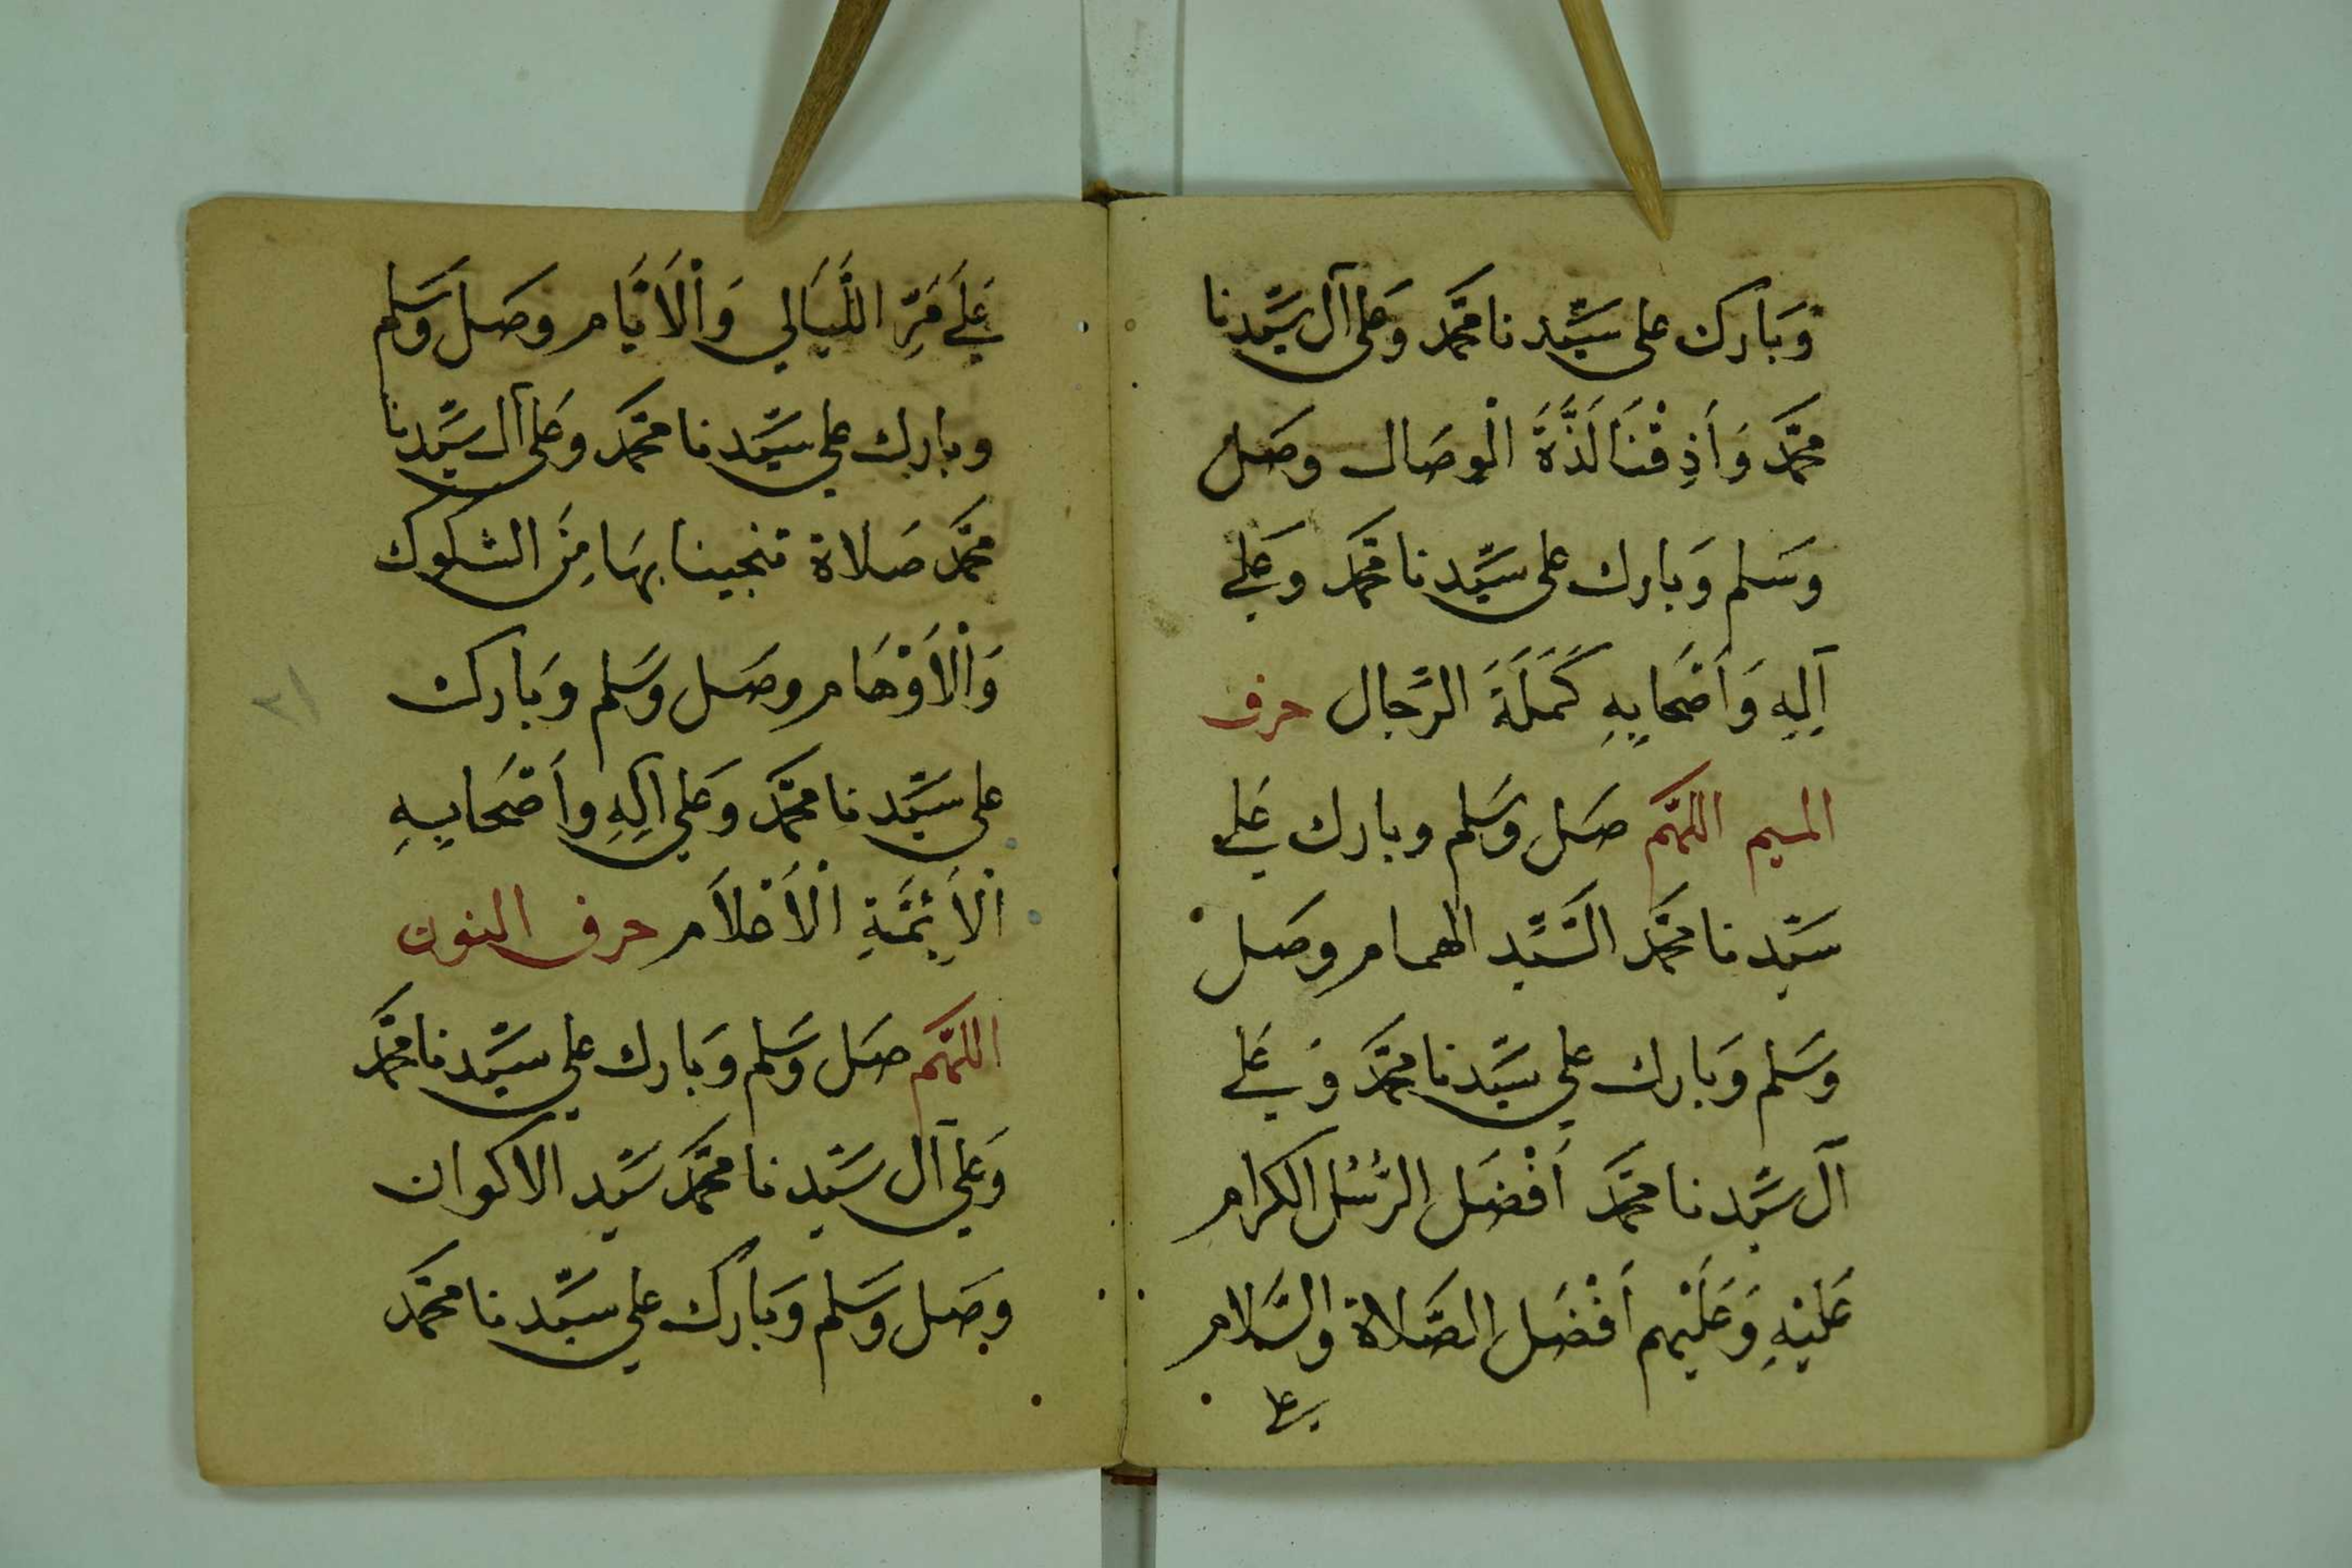 وَبَارك على سيِّدنا محمَّد وَعَلى آل سيِّدنا
محمَّد وَأَذِقْنَا لَذَّةَ الْوصَال وصَل
وَسَلم وَبارك على سيِّدنا محمَّد وعَلى
آلِهِ وَأَصْحَابِهِ كُمَلَةَ الرِّجال حرف
الميم اللهمَّ صَل وَسَلم وبارك عَلى
سيِّدنا محمَّد السَّيِّد الهمام وصَل
وَسَلم وَبارك على سيِّدنا محمَّد وَعَلى
آل سيِّدنا محمَّد أَفْضَل الرُّسُل الكرام
عَلَيْهِ وَعَلَيْهم أَفْضَل الصَّلاة والسَّلام
على
عَلَى مَرِّ اللَّيَالِي وَالْأَيَّام وصَل وَسَلم
وبارك على سيِّدنا محمَّد وعَلى آل سيِّدنا
محمَّد صَلاة تنجينا بهَا مِنَ الشكوك
وَالْأَوْهَام وصَل وَسَلم وَبَارك
على سيِّدنا محمَّد وعَلى آلِهِ وأَصْحَابِهِ
الْأَئِمَّةِ الْأَعْلاَم حرف النون
اللهمَّ صَل وَسَلم وَبَارك على سيِّدنا محمَّد
وَعَلى آل سيِّدنا محمَّد سيِّد الاكوان
وصَل وَسَلم وَبَارك على سيِّدنا محمَّد
٢١